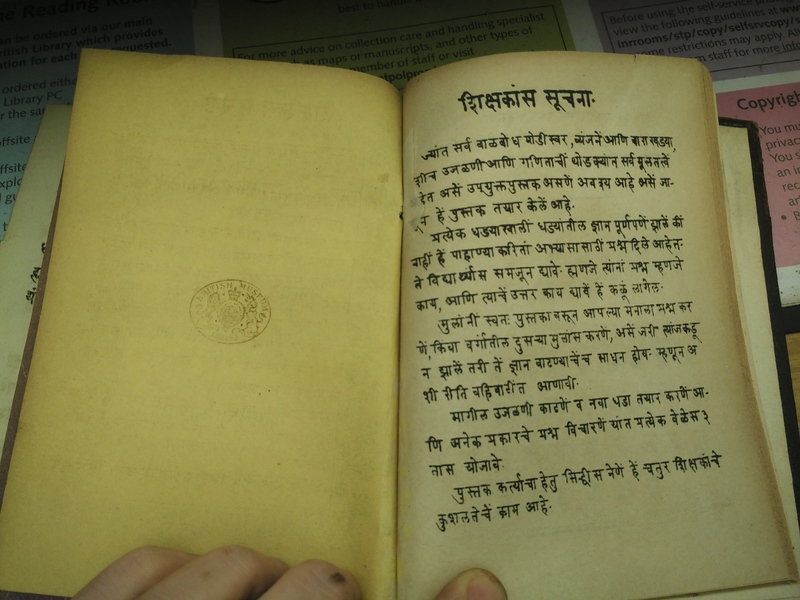 an be ordered via our main
British Library which provides
ation for each
requested.
ordered either
Library PC
offsite
For more advice on collection care and handling specialist
as maps or manuscripts, and other types of
member of staff or visit
Before using the self-service
view the following guidelines at www.
inrrooms/stp/copy/selfsrvcopy/
me restrictions may apply. All
m staff for more info
Copyrig
You mu
privac
BRITISH MUSEUM
शिक्षकांस सूचना.
ज्यांत सर्व बाळबोध घोडीस्वर, व्यंजनें आणि बाराखड्या,
शीच उजळणी आणि गणिताचीं थोडक्यांत सर्व मूलतत्वें
हेत असें उपयुक्त पुस्तक असणें अवश्य आहे असें जा-
न हें पुस्तक तयार केलें आहे.
प्रत्येक धड्याखालीं धड्यांतील ज्ञान पूर्णपणें झालें कीं
नाहीं हें पाहाण्या करितां अभ्यासासाठीं प्रश्न दिले आहेत.
ते विद्यार्थ्यास समजून द्यावे. ह्मणजे त्यांनां प्रश्न म्हणजे
काय, आणि त्याचें उत्तर काय द्यावें हें कळूं लागेल.
मुलांनीं स्वतः पुस्तकावरून आपल्या मनाला प्रश्न कर
णें, किंवा वर्गातील दुसऱ्या मुलांस करणे, असें जरी त्यांजकडू
न झालें तरी तें ज्ञान वाढण्याचेंच साधन होय. म्हणून अ
शी रीति वहिवाटींत आणावी.
मागील उजळणी काढणें व नवा धडा तयार करणें आ-
णि अनेक प्रकारचे प्रश्न विचारणें यांत प्रत्येक वेळेस ३
तास योजावे.
पुस्तक कर्त्याचा हेतु सिद्धीस नेणे हें चतुर शिक्षकांचे
कुशलतेचें काम आहे.